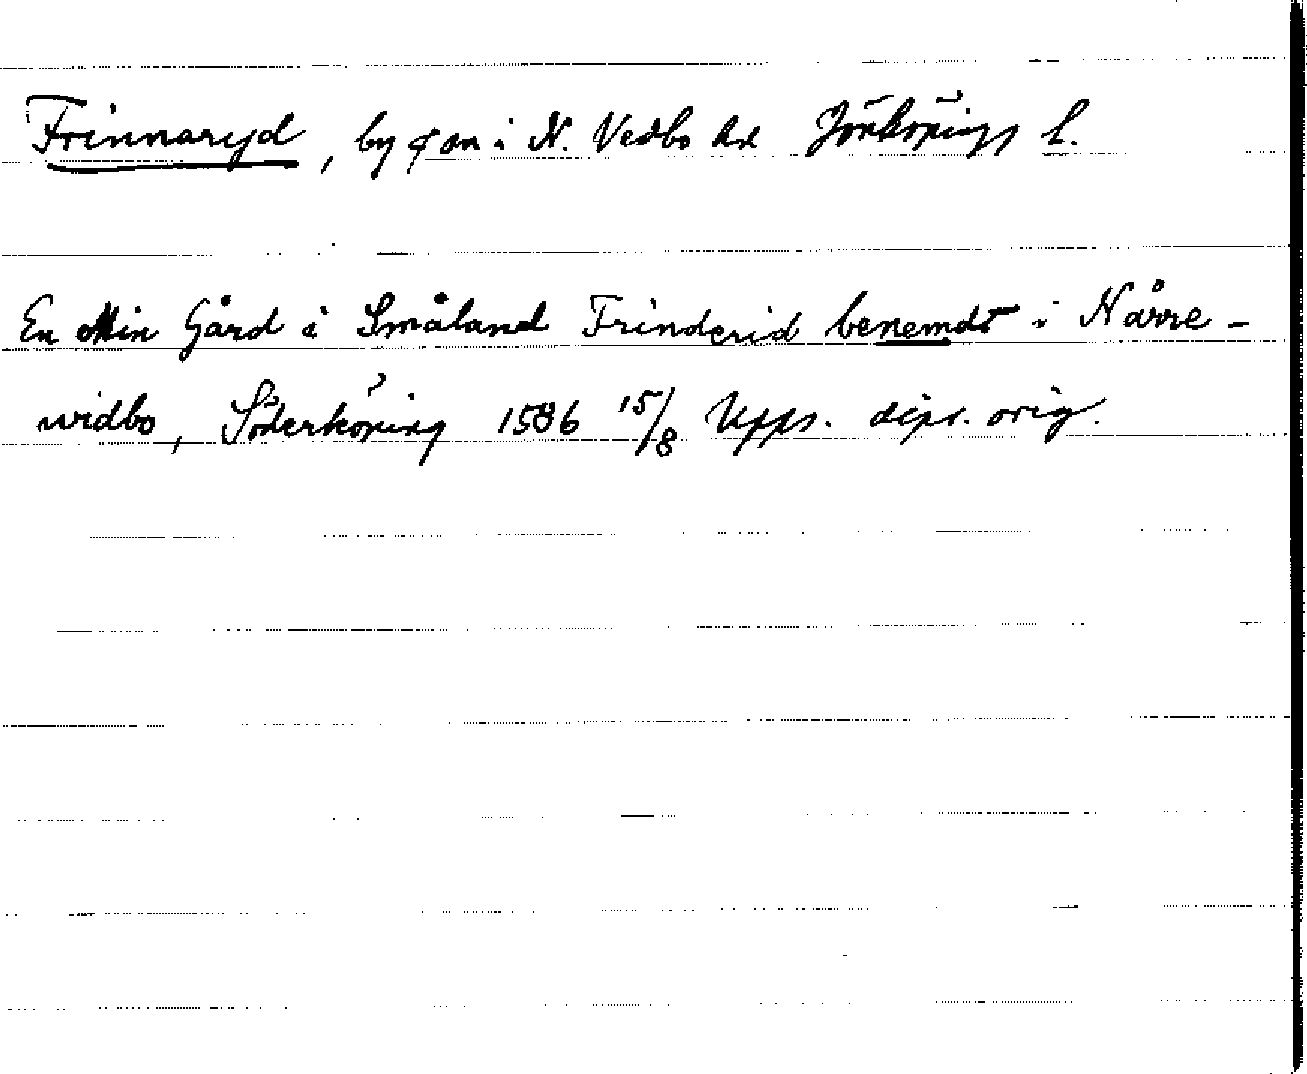 Frinnaryd, by o sn i N. Vedbo hd Jönköpings l.
En Min Gård i Småland Frinderid benemdt i Nårre-
widbo, Söderköping 1586 15/8 Upps. dipl. orig.